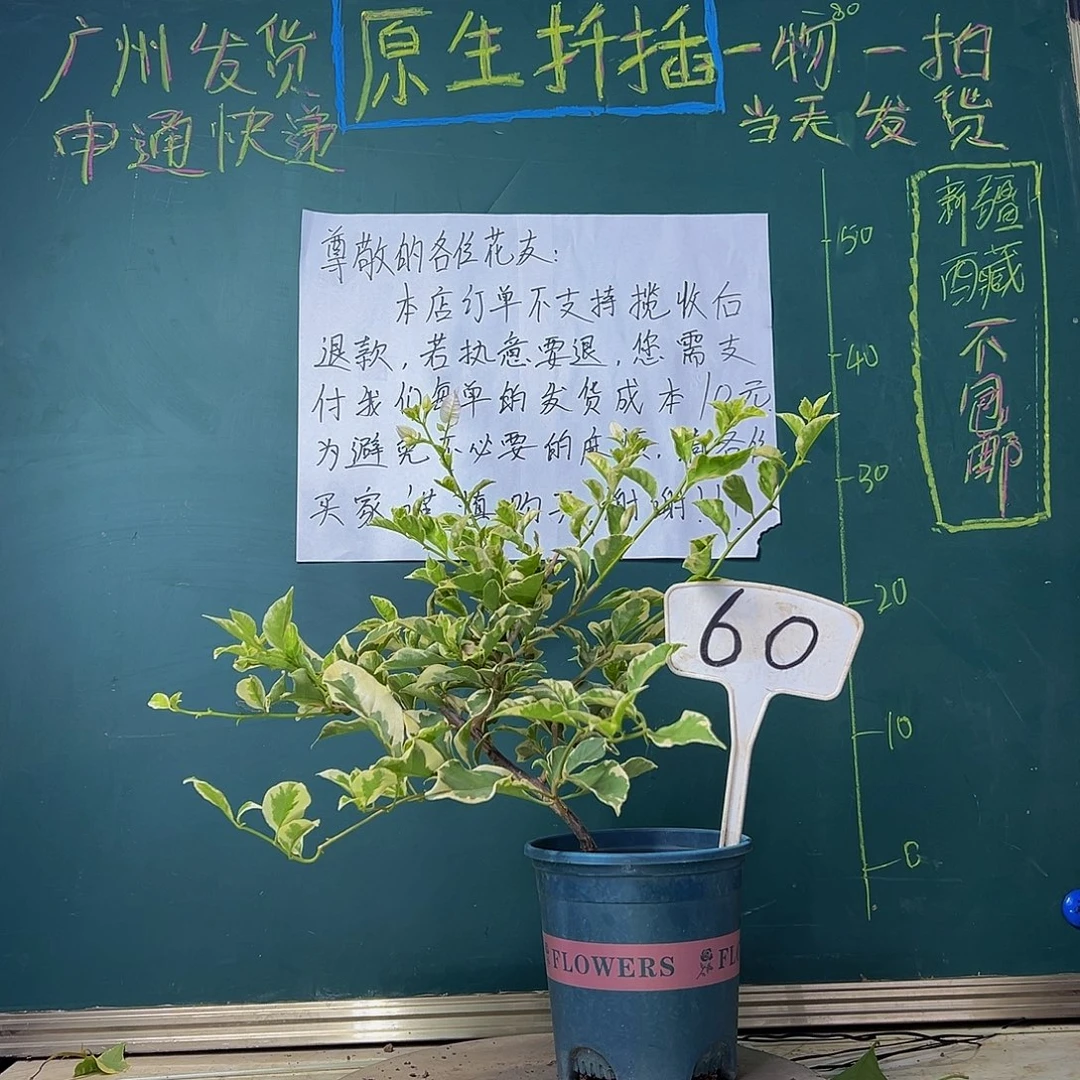 广州发货
申通快递
原生扦插
一物一拍
当天发货
80
新疆
西藏
不包邮
尊敬的各位花友：
本店订单不支持揽收后
退款，若执意要退，您需支
付我们每单的发货成本10元
为避免不必要的 各位
买家 谢谢！
50
40
30
20
10
0
60
FLOWERS
FL